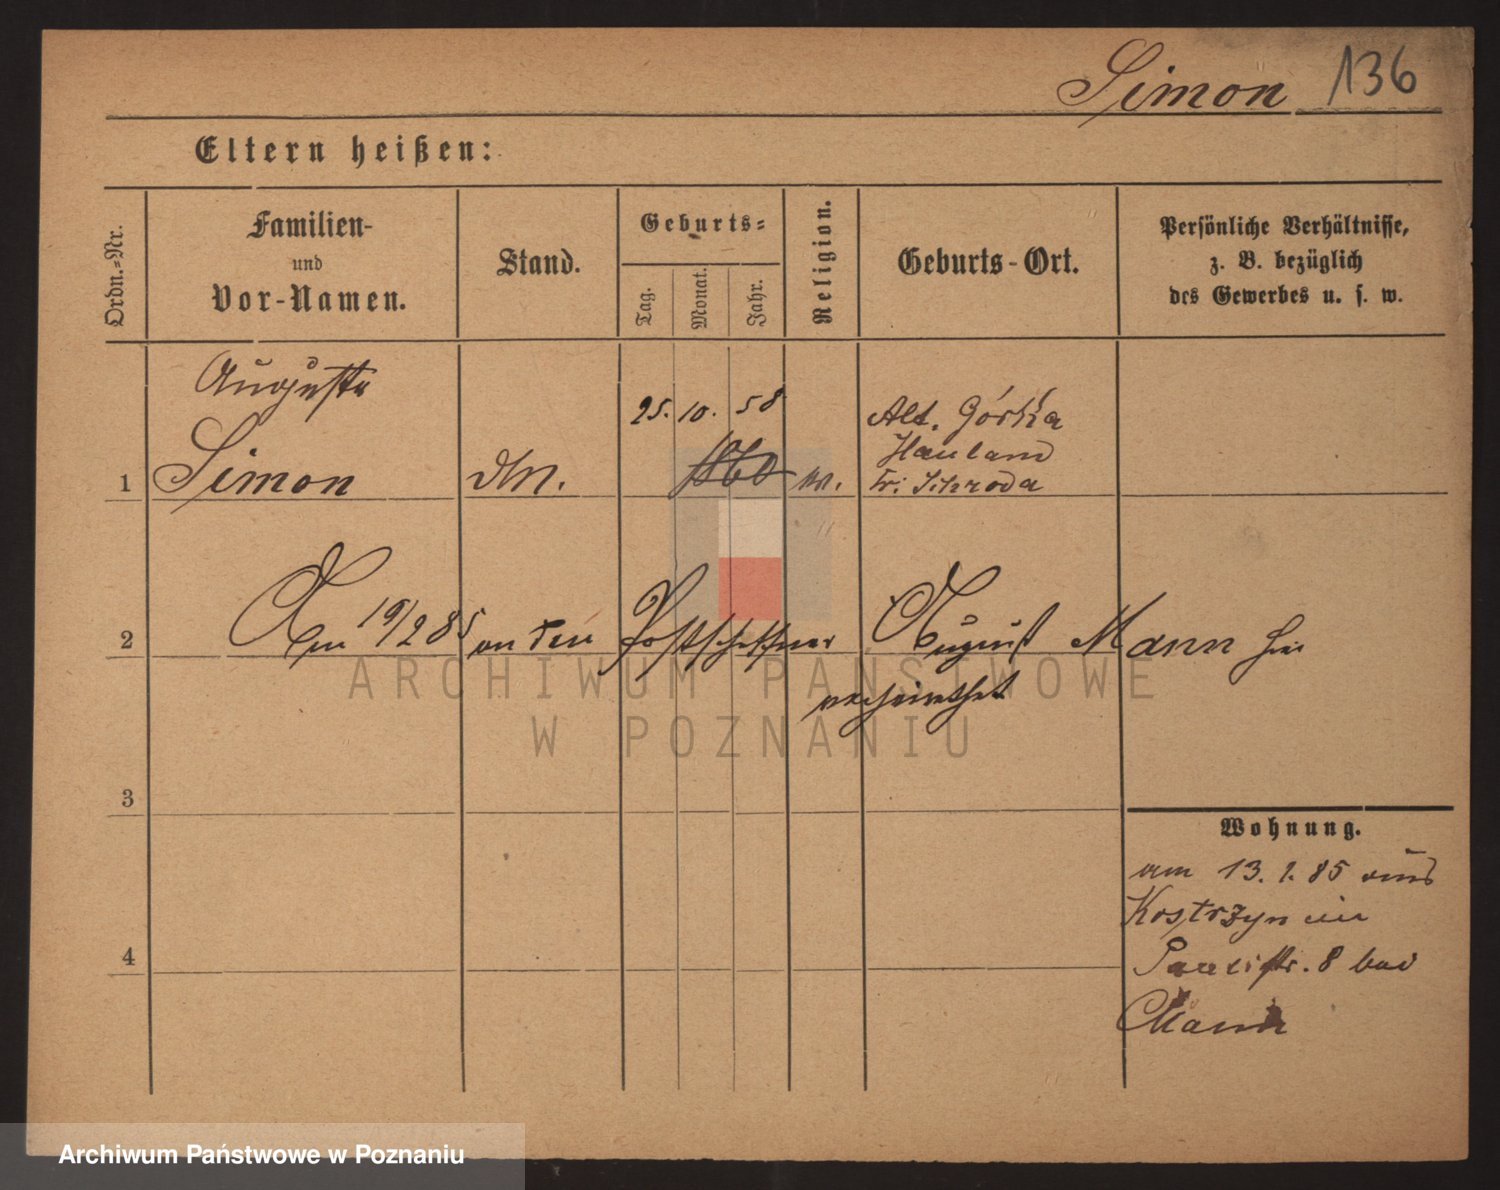 Simon 136
Eltern heißen:
Ordn.=Nr.
Familien-
und
Vor-Namen.
Stand.
Geburts=
Tag.
Monat.
Jahr.
Religion.
Geburts-Ort.
Persönliche Verhältnisse,
z. B. bezüglich
des Gewerbes u. s. w.
Auguste
1 Simon
25. 10. 58
1860
Alt. Górka
Hauland
Kr. Schroda
2 Am 19/2 85 an den Postschaffner August Mann hier
verheirathet
3
Wohnung.
am 13. 1. 85 aus
Kostrzyn in
Paulistr. 8 bei
4
Mann
ARCHIWUM PAŃSTWOWE
W POZNANIU
Archiwum Państwowe w Poznaniu